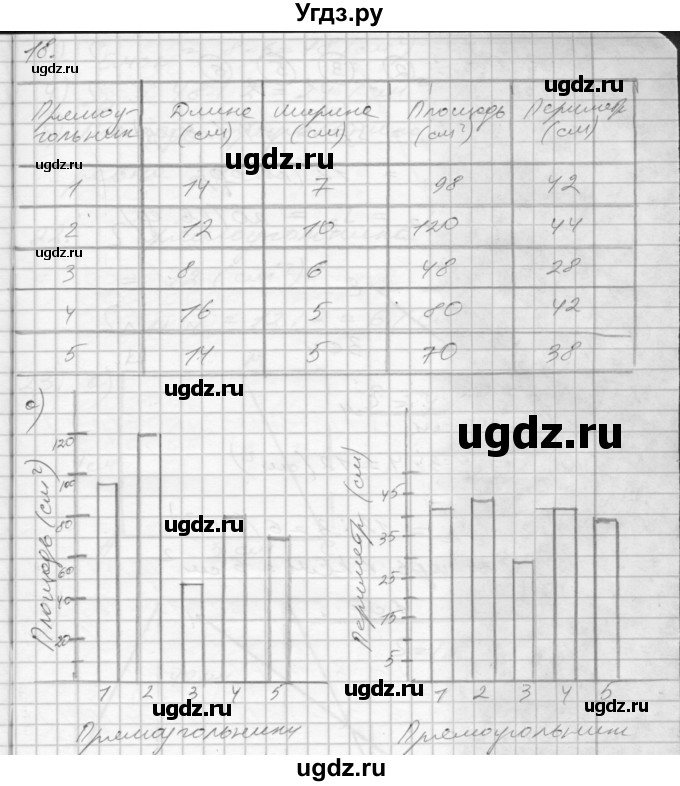 Угдз.ру
18.
ugdz.ru
ugdz.ru
Прямоу- Длина Ширина Площадь Периметр
гольник (см) (см) (см²) (см)
ugdz.ru
ugdz.ru
1 14 7 98 42
2 12 10 120 44
ugdz.ru
3 8 6 48 28
4 16 5 80 42
5 14 5 70 38
ugdz.ru
а)
ugdz.ru
120
100
80
60
40
20
Площадь (см²)
ugdz.ru
45
35
25
15
5
Периметр (см)
ugdz.ru
1 2 3 4 5
1 2 3 4 5
ugdz.ru
ugdz.ru
ugdz.ru
Прямоугольники
Прямоугольник
ugdz.ru